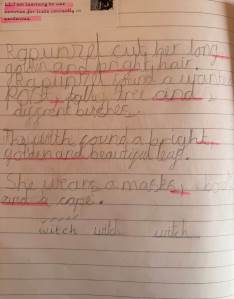 L.I. I am learning to use
commas for lists correctly in
sentences.
Rapunzel cut her long,
golden and bright hair.
Rapunzel found a
tree and
different
The witch found a bright,
golden and beautiful leaf.
She wears a mask,
and a cape.
witch witch witch